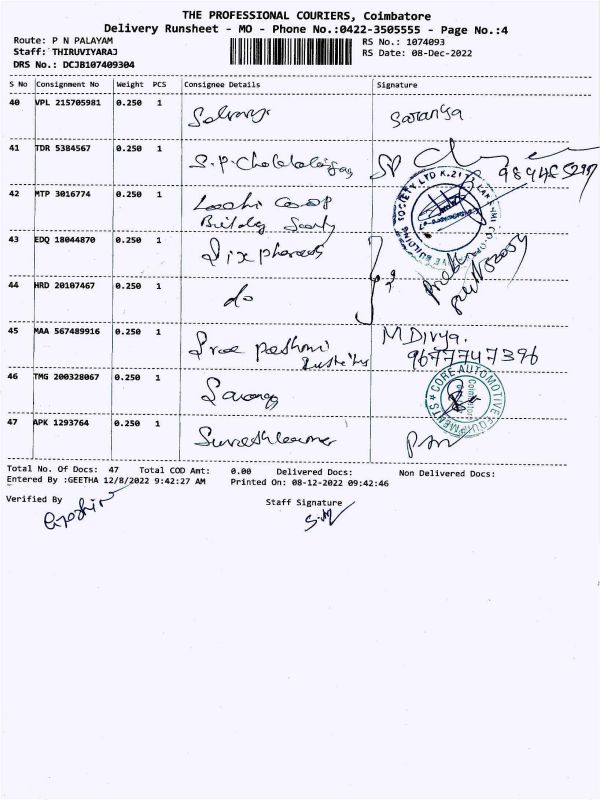 THE PROFESSIONAL COURIERS, Coimbatore
Delivery Runsheet - MO - Phone No.:0422-3505555 - Page No.:4
Route: P N PALAYAM
RS No.: 1074093
Staff: THIRUVIYARAJ
RS Date: 08-Dec-2022
DRS No.: DCJB107409304
S No Consignment No Weight PCS Consignee Details Signature
40 VPL 215705981 0.250 1 Saranya
41 TDR 5384567 0.250 1 S.P.
42 MTP 3016774 0.250 1
43 EDQ 18044870 0.250 1
44 HRD 20107467 0.250 1 do
45 MAA 567489916 0.250 1 Sree M Divya.
9677747396
46 TMG 200328067 0.250 1 CORE AUTOMOTIVE EQUIPMENTS
47 APK 1293764 0.250 1 Sureshkumar
Total No. Of Docs: 47 Total COD Amt: 0.00 Delivered Docs: Non Delivered Docs:
Entered By :GEETHA 12/8/2022 9:42:27 AM Printed On: 08-12-2022 09:42:46
Verified By Staff Signature